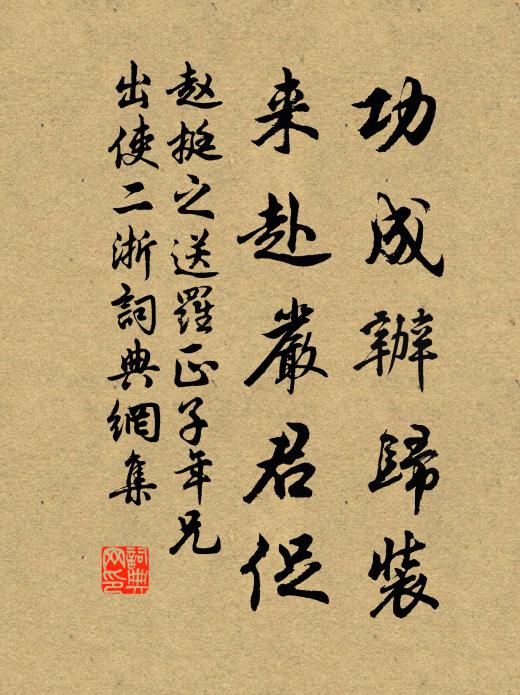 功成辦歸裝
来赴嚴君促
赵挺之送羅正子年兄
出使二浙詞典網集
詞典
网印